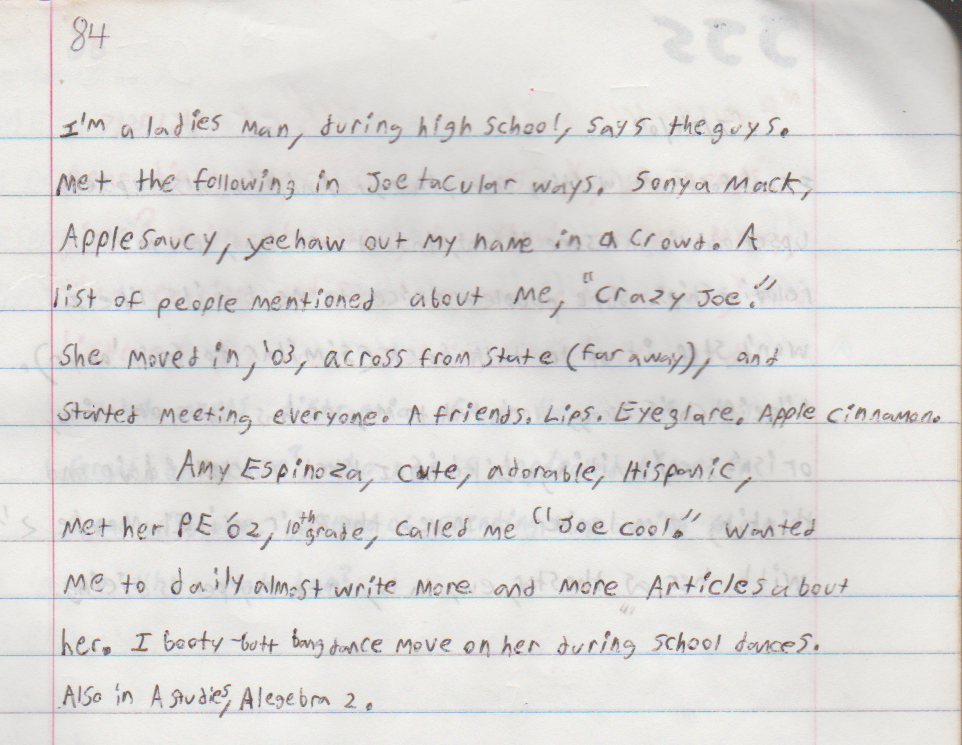 84
I'm a ladies man, during high school, says the guys.
Met the following in Joetacular ways. Sonya Mack,
Applesaucy, yeehaw out my name in a crowd. A
list of people mentioned about me, "Crazy Joe."
She moved in, '03, across from state (far away), and
started meeting everyone. A friends. Lips. Eyeglare. Apple cinnamon.
Amy Espinoza, cute, adorable, Hispanic,
Met her PE '02, 10th grade, called me "Joe cool." wanted
me to daily almost write more and more Articles about
her. I booty-butt bang dance move on her during school dances.
Also in A studies, Alegebra 2.